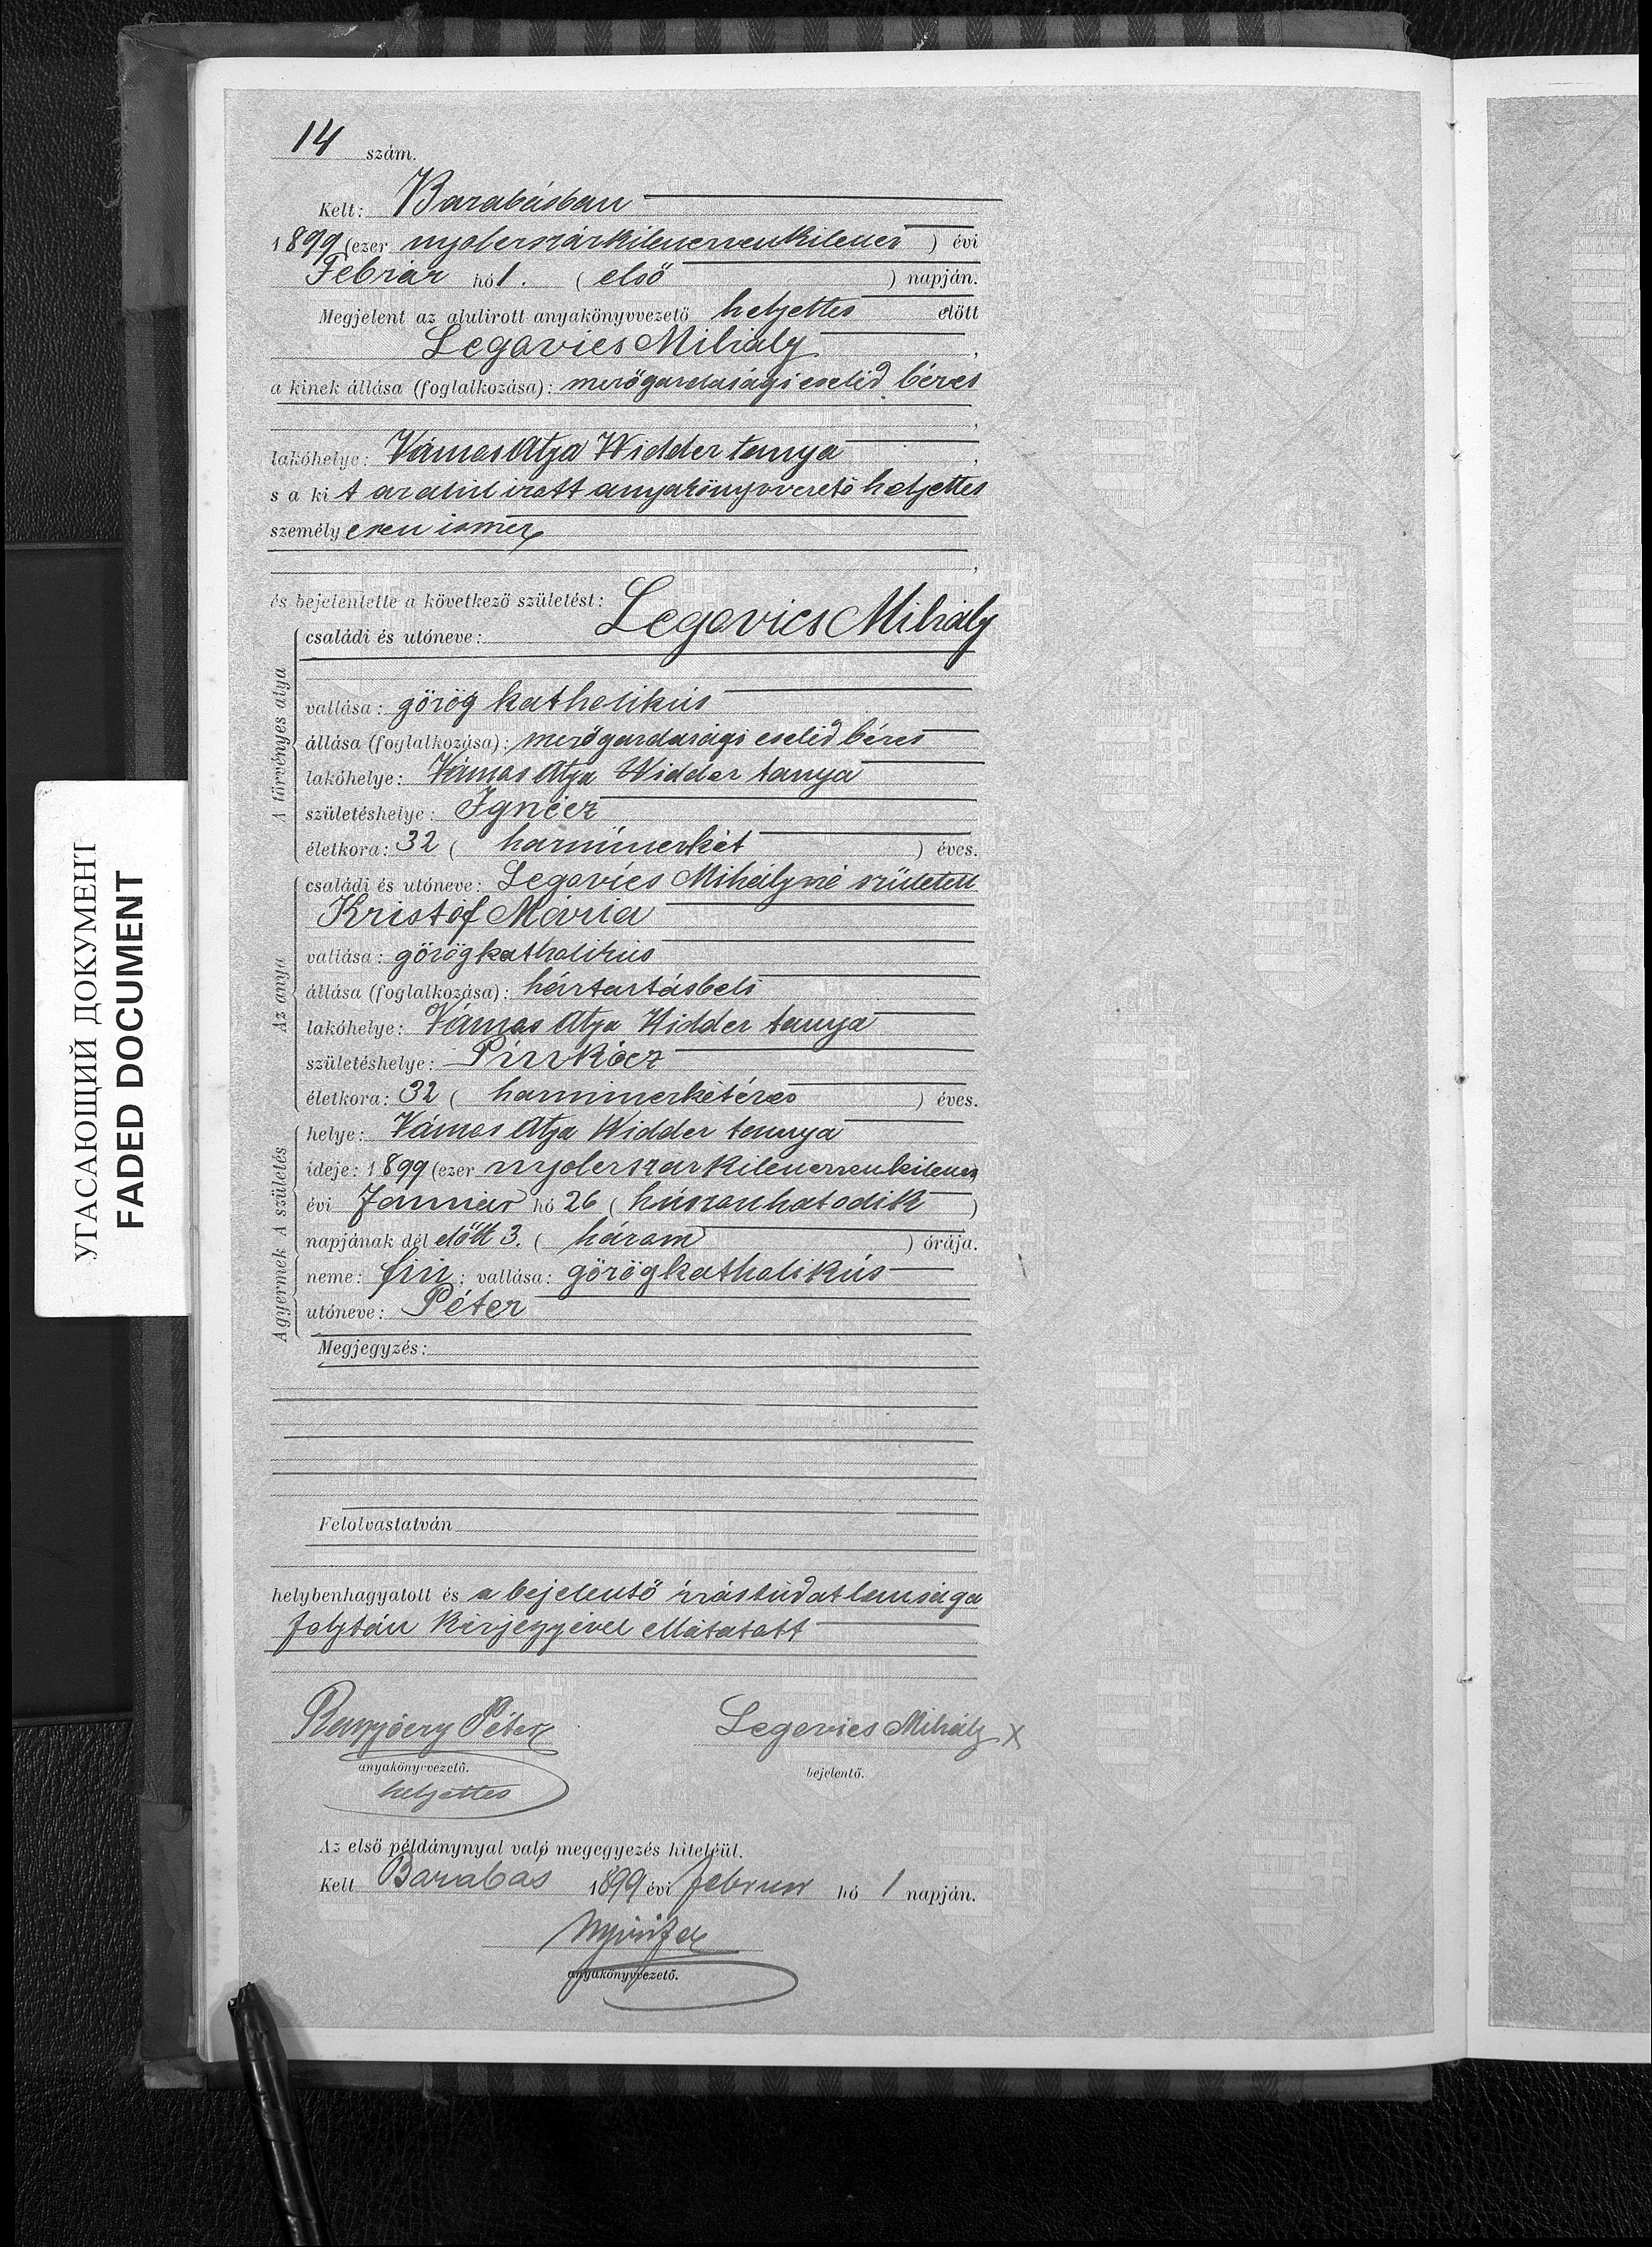 14 szám.
Kelt: Barabásban
1899 (ezer nyolczszázkilenczvenkilencz) évi
Február hó 1. (első) napján.
Megjelent az alulirott anyakönyvvezető helyettes előtt
Legovics Mihály,
a kinek állása (foglalkozása): mezőgazdasági cseléd béres
lakóhelye: Vámos Atya Widder tanya,
s a kit az alulirott anyakönyvvezető helyettes
személyesen ismer,
és bejelentette a következő születést:
A törvényes atya
családi és utóneve: Legovics Mihály
vallása: görög katholikus
állása (foglalkozása): mezőgazdasági cseléd béres
lakóhelye: Vámos Atya Widder tanya
születéshelye: Ignécz
életkora: 32 (harminczkét) éves.
Az anya
családi és utóneve: Legovics Mihályné született
Kristóf Mária
vallása: görögkatholikus
állása (foglalkozása): háztartásbeli
lakóhelye: Vámos Atya Widder tanya
születéshelye: Pinkócz
életkora: 32 (harminczkétéves) éves.
A gyermek A születés
helye: Vámos Atya Widder tanya
ideje: 1899 (ezer nyolczszázkilenczvenkilencz)
évi Január hó 26 (húszonhatodik)
napjának dél előtt 3. (három) órája.
neme: fiu; vallása: görögkatholikus
utóneve: Péter
Megjegyzés:
Felolvastatván
helybenhagyatott és a bejelentő irástudatlansága
folytán kézjegyével ellátatott
Péter Legovics Mihály X
anyakönyvvezető. bejelentő.
helyettes
Az első példánynyal való megegyezés hiteléül.
Kelt Barabas 1899 évi február hó 1 napján.
anyakönyvvezető.
УГАСАЮЩИЙ ДОКУМЕНТ
FADED DOCUMENT